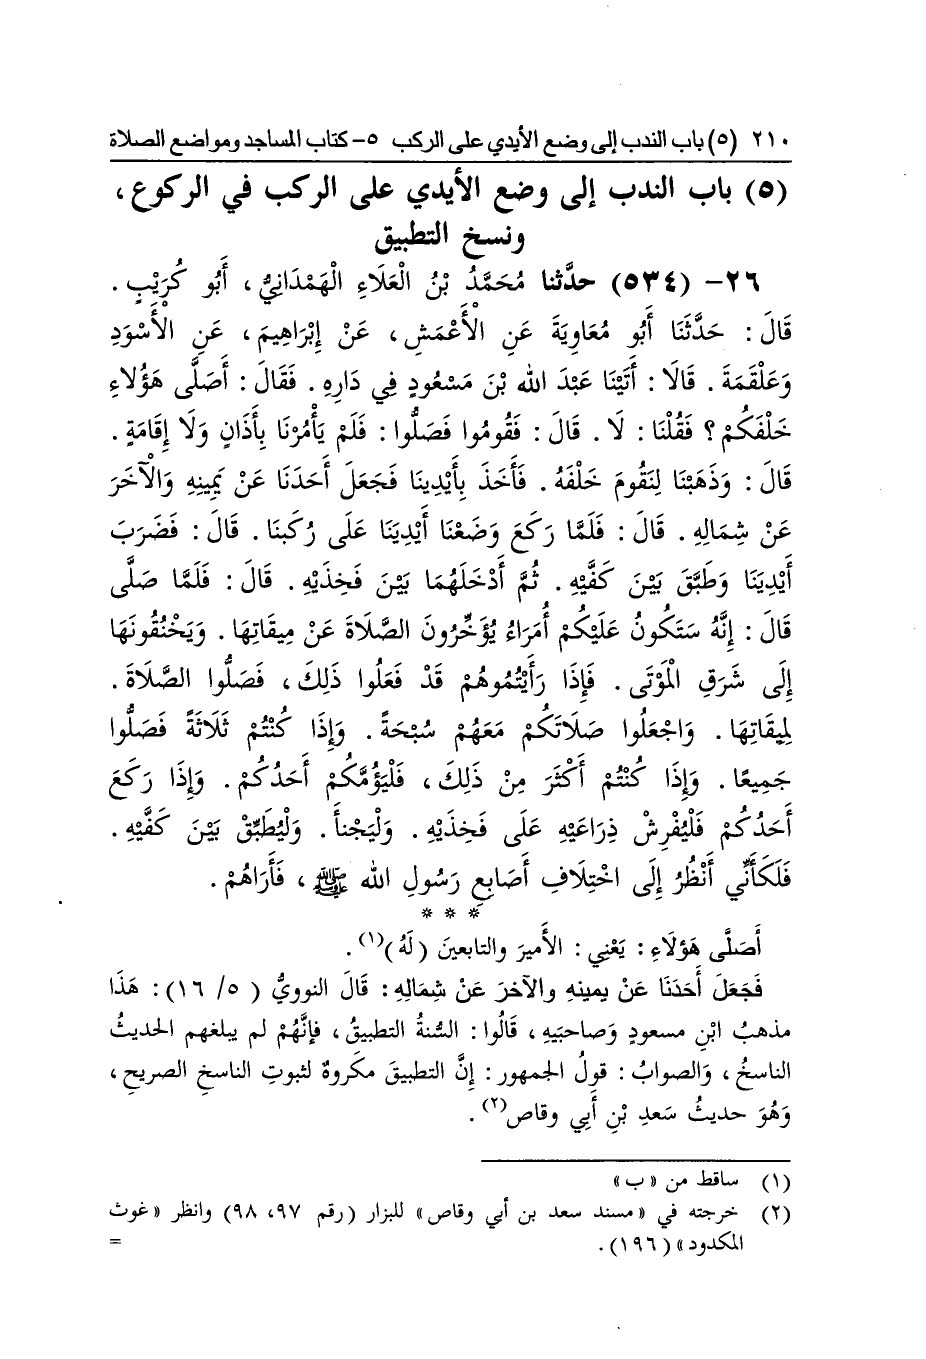 ٢١٠ (٥) باب الندب إلى وضع الأيدي على الركب ٥- كتاب المساجد ومواضع الصلاة
(٥) باب الندب إلى وضع الأيدي على الركب في الركوع،
ونسخ التطبيق
٢٦- (٥٣٤) حدَّثنا مُحَمَّدُ بْنُ الْعَلَاءِ الْهَمْدَانِيُّ، أَبُو كُرَيْبٍ.
قَالَ: حَدَّثَنَا أَبُو مُعَاوِيَةَ عَنِ الْأَعْمَشِ، عَنْ إِبْرَاهِيمَ، عَنِ الْأَسْوَدِ
وَعَلْقَمَةَ. قَالَا: أَتَيْنَا عَبْدَ الله بْنَ مَسْعُودٍ فِي دَارِهِ. فَقَالَ: أَصَلَّى هَؤُلَاءِ
خَلْفَكُمْ؟ فَقُلْنَا: لَا. قَالَ: فَقُومُوا فَصَلُّوا: فَلَمْ يَأْمُرْنَا بِأَذَانٍ وَلَا إِقَامَةٍ.
قَالَ: وَذَهَبْنَا لِنَقُومَ خَلْفَهُ. فَأَخَذَ بِأَيْدِينَا فَجَعَلَ أَحَدَنَا عَنْ يَمِينِهِ وَالْآخَرَ
عَنْ شِمَالِهِ. قَالَ: فَلَمَّا رَكَعَ وَضَعْنَا أَيْدِيَنَا عَلَى رُكَبِنَا. قَالَ: فَضَرَبَ
أَيْدِيَنَا وَطَبَّقَ بَيْنَ كَفَّيْهِ. ثُمَّ أَدْخَلَهُمَا بَيْنَ فَخِذَيْهِ. قَالَ: فَلَمَّا صَلَّى
قَالَ: إِنَّهُ سَتَكُونُ عَلَيْكُمْ أُمَرَاءُ يُؤَخِّرُونَ الصَّلَاةَ عَنْ مِيقَاتِهَا. وَيَخْنُقُونَهَا
إِلَى شَرَقِ الْمَوْتَى. فَإِذَا رَأَيْتُمُوهُمْ قَدْ فَعَلُوا ذَلِكَ، فَصَلُّوا الصَّلَاةَ.
لِمِيقَاتِهَا. وَاجْعَلُوا صَلَاتَكُمْ مَعَهُمْ سُبْحَةً. وَإِذَا كُنْتُمْ ثَلَاثَةً فَصَلُّوا
جَمِيعًا. وَإِذَا كُنْتُمْ أَكْثَرَ مِنْ ذَلِكَ، فَلْيَؤُمَّكُمْ أَحَدُكُمْ. وَإِذَا رَكَعَ
أَحَدُكُمْ فَلْيُفْرِشْ ذِرَاعَيْهِ عَلَى فَخِذَيْهِ. وَلْيَجْنأْ. وَلْيُطَبِّقْ بَيْنَ كَفَّيْهِ.
فَلَكَأَنِّي أَنْظُرُ إِلَى اخْتِلَافِ أَصَابِعِ رَسُولِ الله ﷺ، فَأَرَاهُمْ.
* * *
أَصَلَّى هَؤلَاءِ: يَعْنِي: الأَميرَ والتابعينَ (لَهُ)(١).
فَجَعَلَ أَحَدَنَا عَنْ يمينهِ والآخرَ عَنْ شمالهِ: قَالَ النوويُّ (٥/ ١٦): هَذَا
مذهبُ ابْنِ مسعودٍ وَصاحبَيهِ، قَالُوا: السُّنةُ التطبيقُ، فإنَّهُمْ لم يبلغهم الحديثُ
الناسخُ، وَالصوابُ: قولُ الجمهور: إنَّ التطبيقَ مكروهٌ لثبوتِ الناسخِ الصريحِ،
وَهُوَ حديثُ سَعدِ بْنِ أَبِي وقاص(٢).
(١) ساقط من «ب»
(٢) خرجته في «مسند سعد بن أبي وقاص» للبزار (رقم ٩٧، ٩٨) وانظر «غوث
المكدود» (١٩٦). =